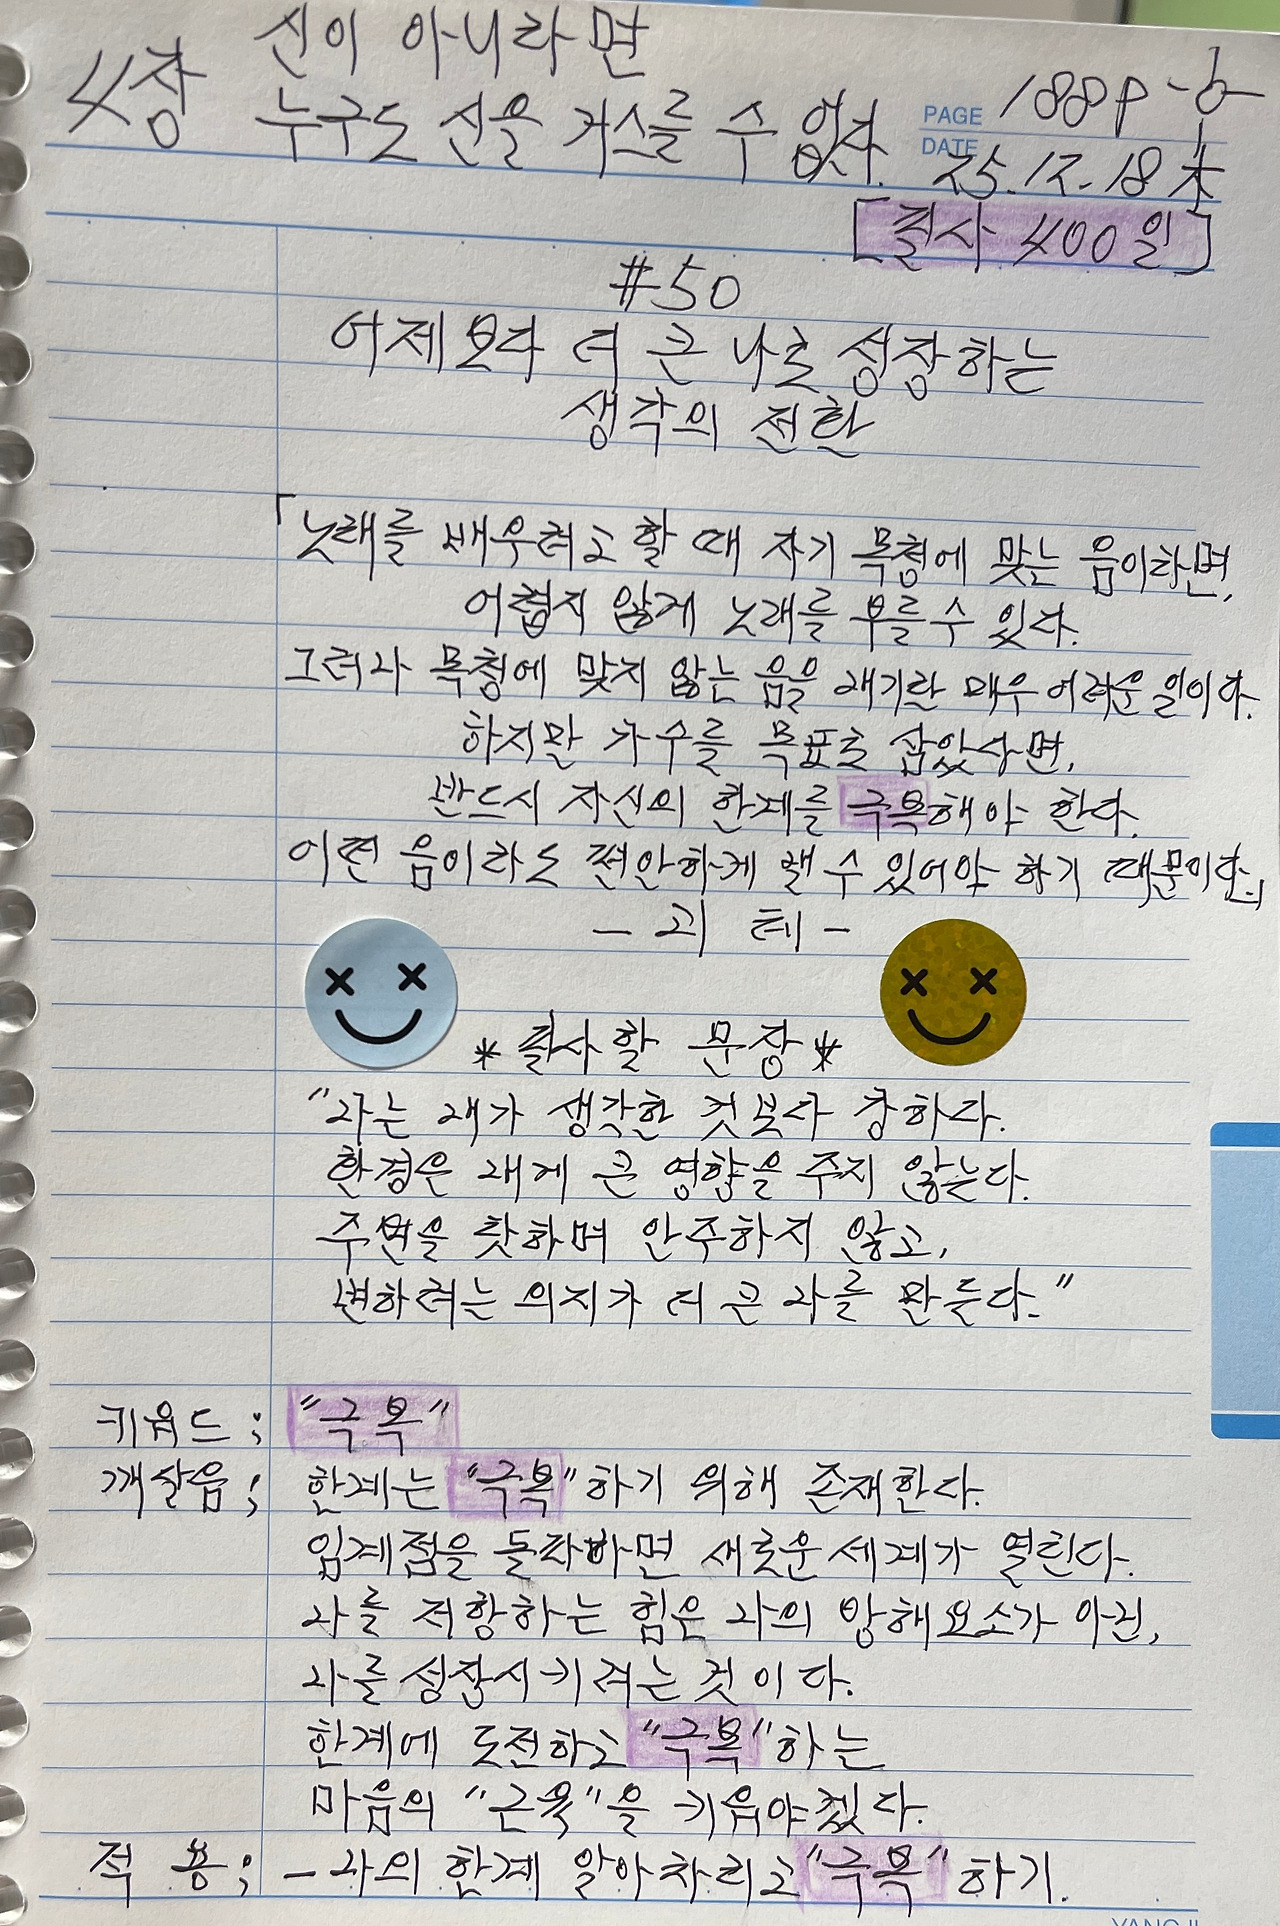 4장 신이 아니라면
누구도 신을 거스를 수 없다.
PAGE 188P
DATE 25.12.18 木
[필사 400일]
#50
어제보다 더 큰 나로 성장하는
생각의 전환
「노래를 배우려고 할 때 자기 목청에 맞는 음이라면,
어렵지 않게 노래를 부를 수 있다.
그러나 목청에 맞지 않는 음을 내기란 매우 어려운 일이다.
하지만 가수를 목표로 삼았다면,
반드시 자신의 한계를 극복해야 한다.
어떤 음이라도 편안하게 낼 수 있어야 하기 때문이다.」
- 괴테 -
* 필사할 문장 *
"나는 내가 생각한 것보다 강하다.
환경은 내게 큰 영향을 주지 않는다.
주변을 탓하며 안주하지 않고,
변하려는 의지가 더 큰 나를 만든다."
키워드; "극복"
깨살음; 한계는 "극복"하기 위해 존재한다.
임계점을 돌파하면 새로운 세계가 열린다.
나를 저항하는 힘은 나의 방해요소가 아닌,
나를 성장시키려는 것이다.
한계에 도전하고 "극복"하는
마음의 "근육"을 키워야겠다.
적용; - 나의 한계 알아차리고 "극복"하기.